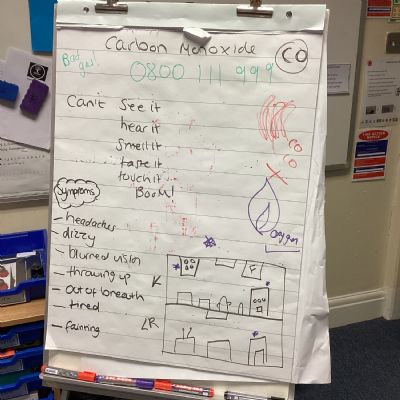 Carbon Monoxide
CO
Bad gas!
0800 111 999
Can't see it
hear it
smell it
taste it
touch it
BOOM!
CO
CO
oxygen
Symptoms
- headaches
- dizzy
- blurred vision
- throwing up
- out of breath
- tired
- fainting
K
F
LR